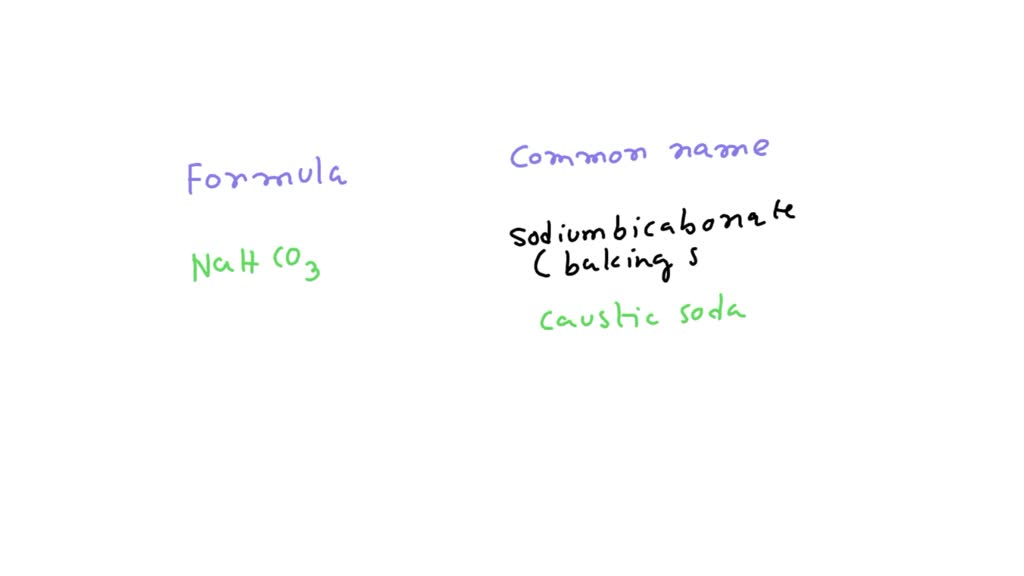 Formula
Common name
NaHCO3
sodiumbicabonate
( baking s
caustic soda